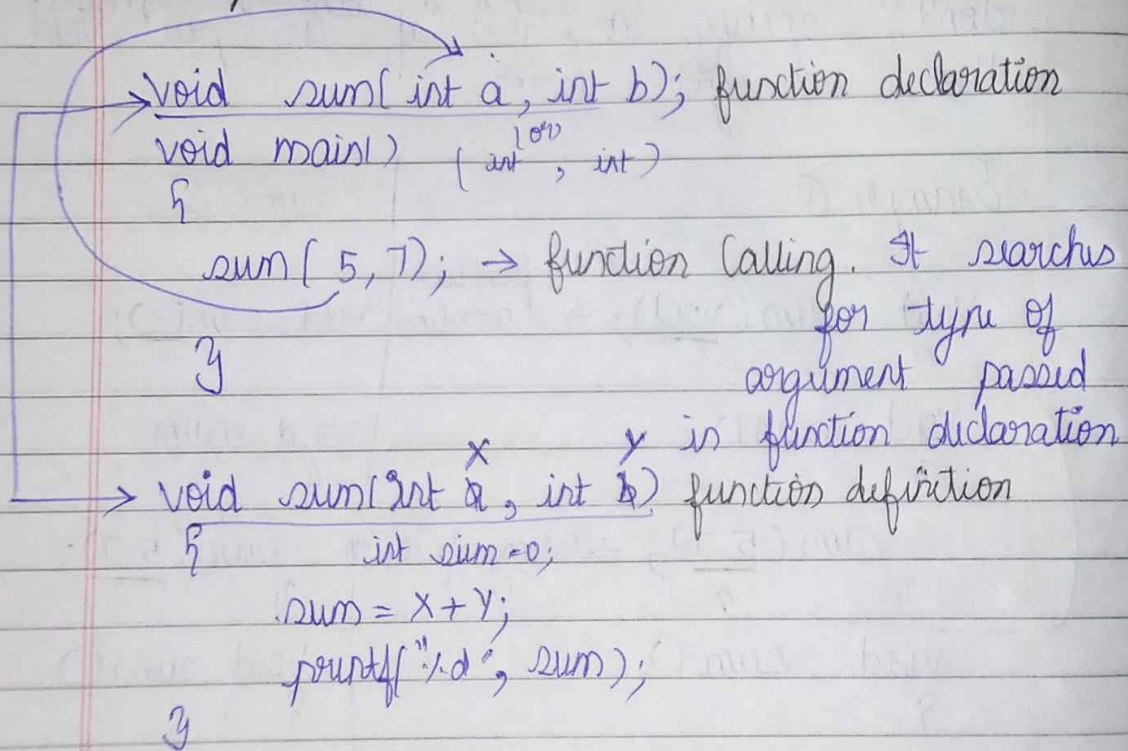 void sum( int a, int b); function declaration
void main() (or)
( int , int )
{
sum( 5, 7); → function Calling. It searches
for type of
argument passed
in function declaration
}
X Y
void sum(int a, int b) function definition
{ int sum=0;
sum = X+Y;
printf("%d", sum);
}